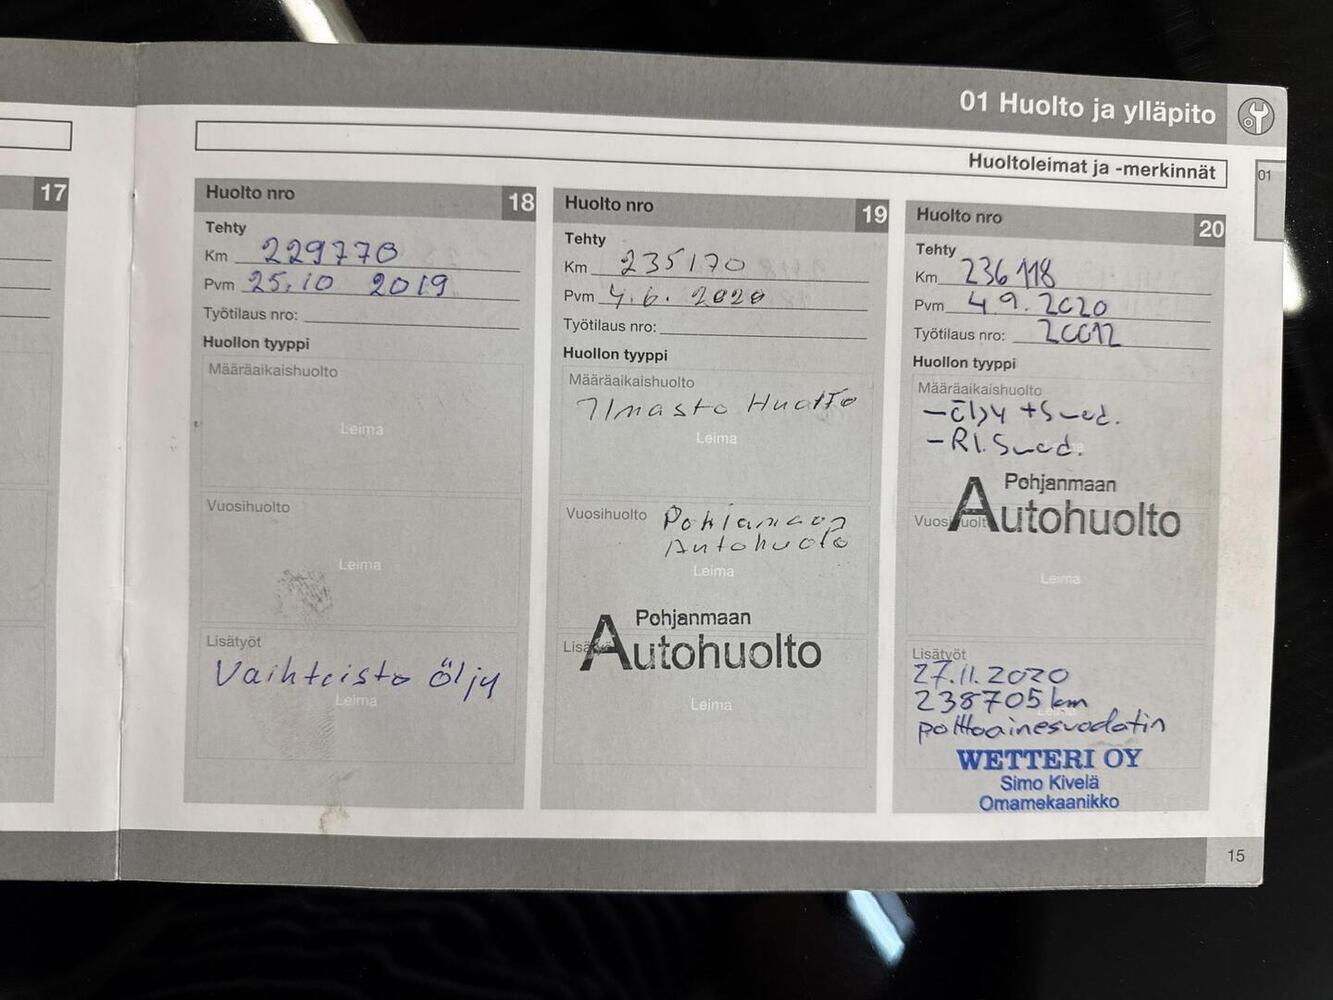 01 Huolto ja ylläpito
Huoltoleimat ja -merkinnät
01
17
Huolto nro 18
Tehty
Km 229770
Pvm 25.10 2019
Työtilaus nro:
Huollon tyyppi
Määräaikaishuolto
Leima
Vuosihuolto
Leima
Lisätyöt
Vaihteisto öljy
Leima
Huolto nro 19
Tehty
Km 235170
Pvm 4.6. 2020
Työtilaus nro:
Huollon tyyppi
Määräaikaishuolto
Ilmasto Huolto
Leima
Vuosihuolto Pohjanmaan
Autohuolto
Leima
Pohjanmaan
Autohuolto
Lisätyöt
Leima
Huolto nro 20
Tehty
Km 236118
Pvm 4.9.2020
Työtilaus nro: 20012
Huollon tyyppi
Määräaikaishuolto
-öljy +Suod.
-RI.Suod.
Pohjanmaan
Autohuolto
Vuosihuolto
Leima
Lisätyöt
27.11.2020
238705 km
polttoainesuodatin
WETTERI OY
Simo Kivelä
Omamekaanikko
15